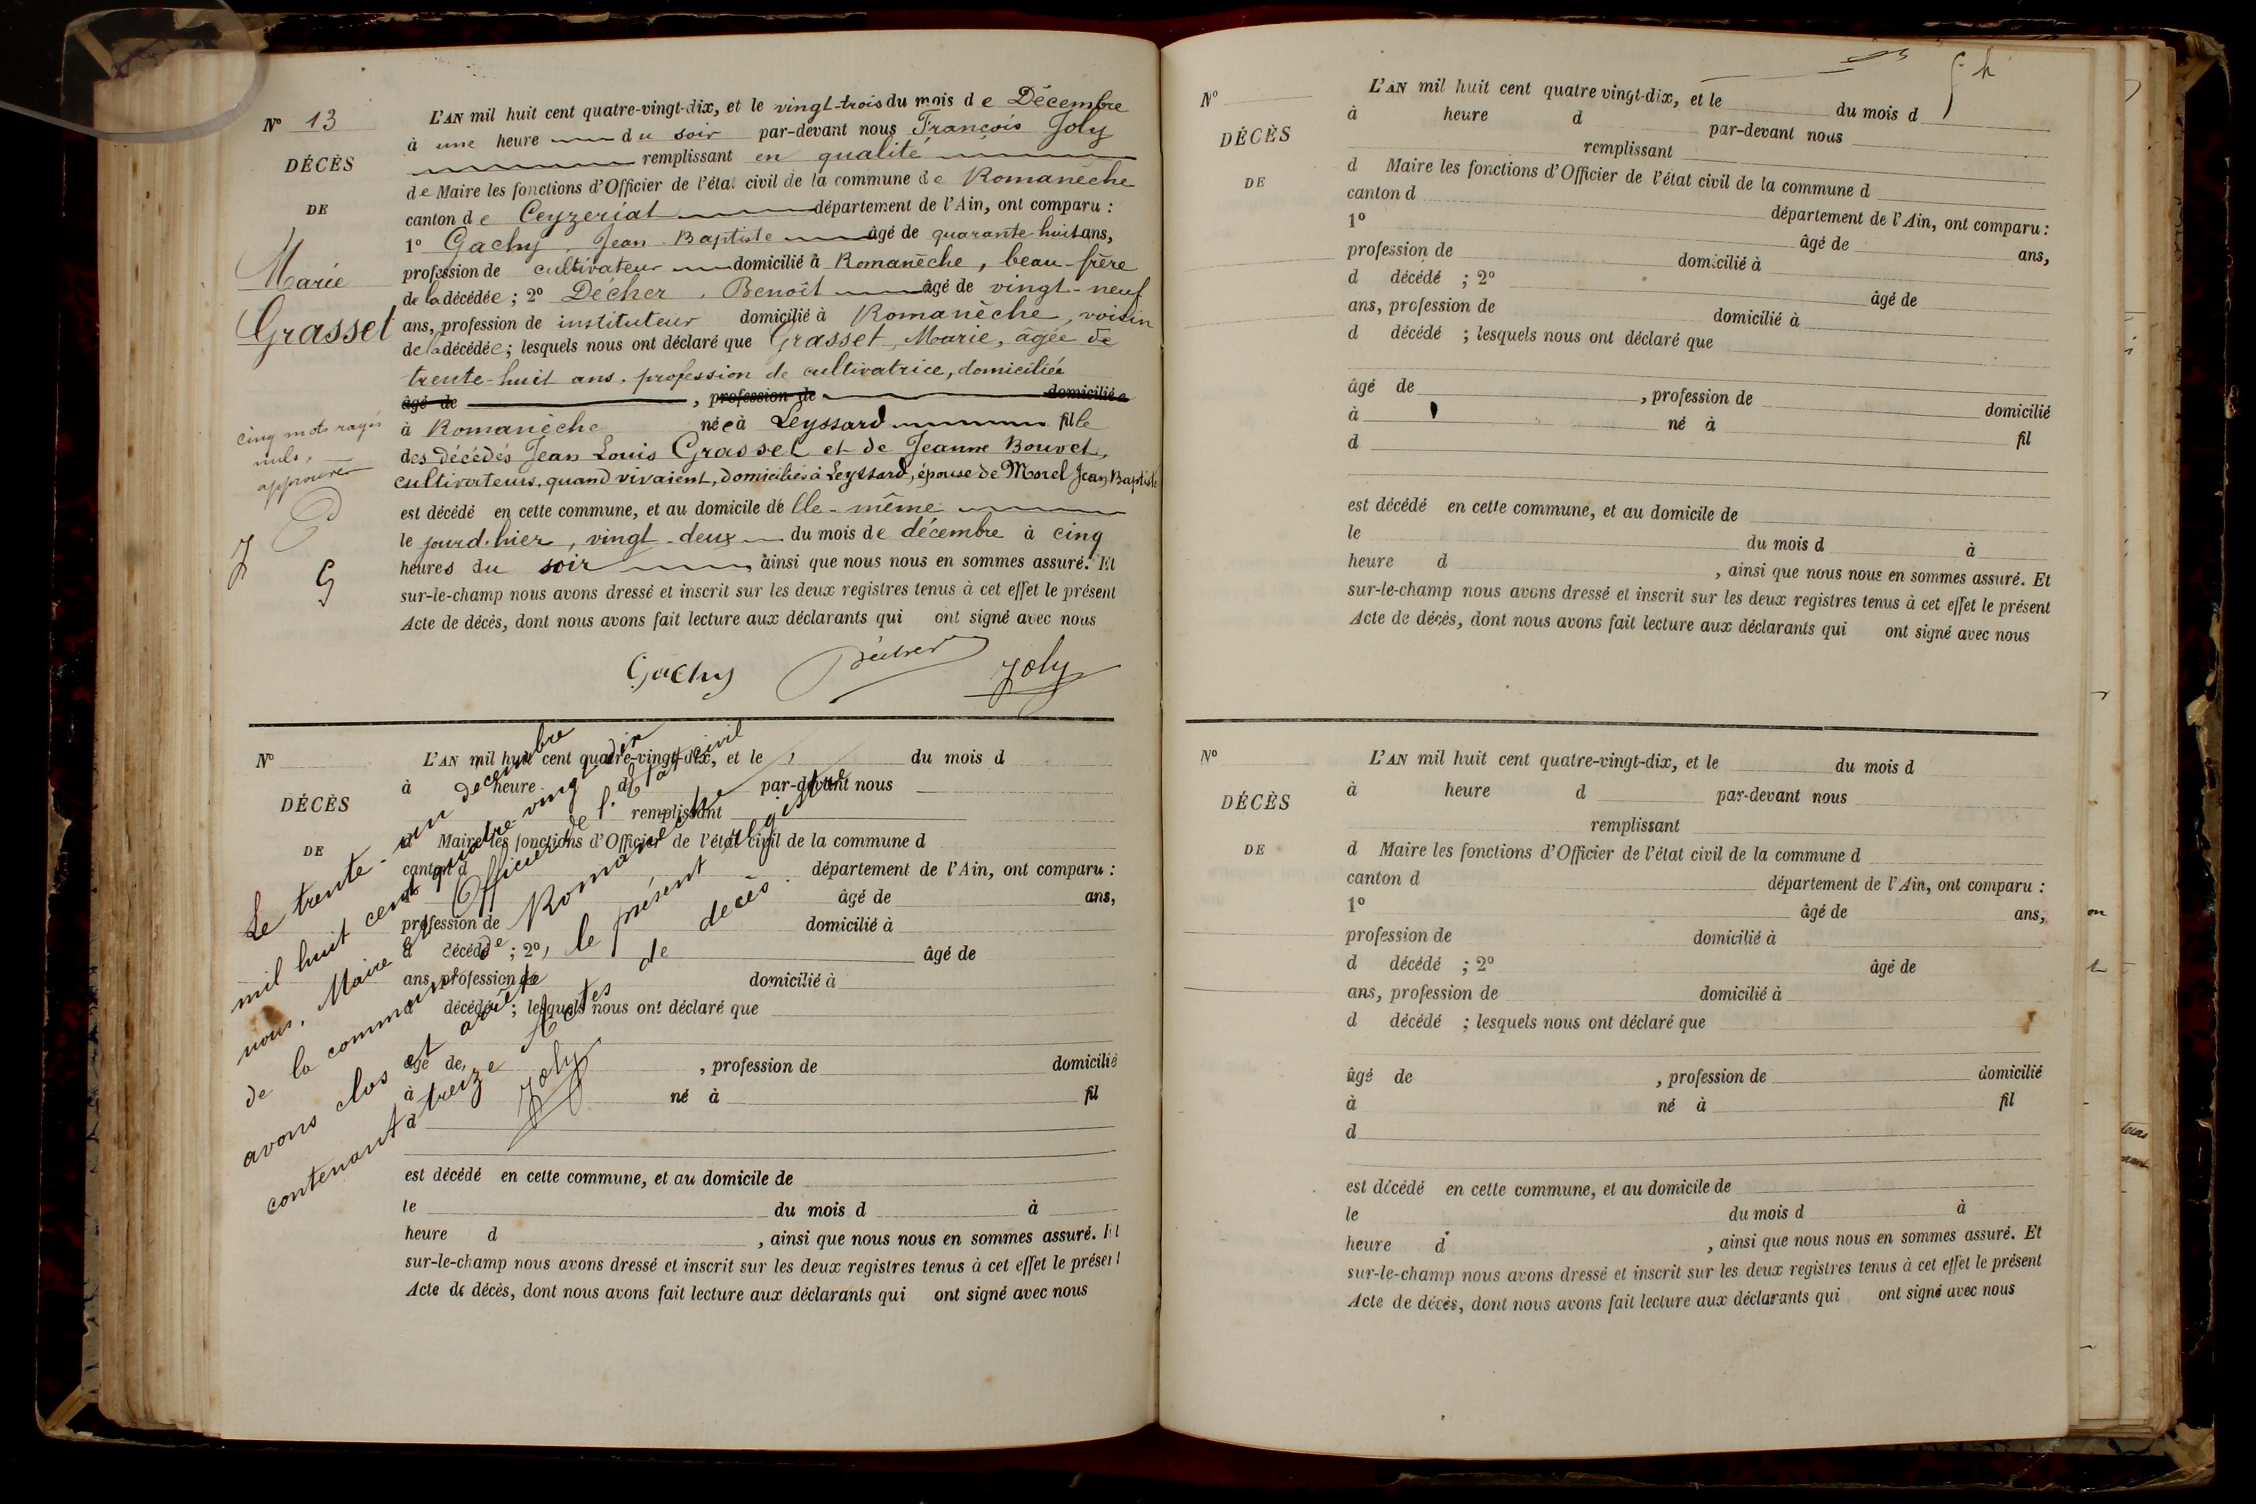 N° 13
DÉCÈS
DE
Marie
Grasset
cinq mots rayés
nuls,
approuvés
D
J
G
L'AN mil huit cent quatre-vingt-dix, et le vingt-trois du mois de Décembre
à une heure du soir par-devant nous François Joly
remplissant en qualité
de Maire les fonctions d'Officier de l'état civil de la commune de Romanèche
canton de Ceyzeriat département de l'Ain, ont comparu :
1° Gachy, Jean-Baptiste âgé de quarante-huit ans,
profession de cultivateur domicilié à Romanèche, beau-frère
de la décédée ; 2° Décher, Benoît âgé de vingt-neuf
ans, profession de instituteur domicilié à Romanèche, voisin
de la décédée ; lesquels nous ont déclaré que Grasset, Marie, âgée de
trente-huit ans, profession de cultivatrice, domiciliée
âgé de , profession de domicilié
à Romanèche née à Leyssard fille
des décédés Jean Louis Grasset et de Jeanne Bouvet,
cultivateurs, quand vivaient, domiciliés à Leyssard, épouse de Morel Jean Baptiste
est décédé en cette commune, et au domicile de lle-même
le jourd'hier, vingt-deux du mois de décembre à cinq
heures du soir ainsi que nous nous en sommes assuré. Et
sur-le-champ nous avons dressé et inscrit sur les deux registres tenus à cet effet le présent
Acte de décès, dont nous avons fait lecture aux déclarants qui ont signé avec nous
Gachy Décher Joly
N°
DÉCÈS
DE
L'AN mil huit cent quatre-vingt-dix, et le du mois d
à heure d par-devant nous
remplissant
d Maire les fonctions d'Officier de l'état civil de la commune d
canton d département de l'Ain, ont comparu :
âgé de ans,
profession de domicilié à
d décédé ; 2° âgé de
ans, profession de domicilié à
d décédé ; lesquels nous ont déclaré que
âgé de , profession de domicilié
à né à fil
d
est décédé en cette commune, et au domicile de
le du mois d à
heure d , ainsi que nous nous en sommes assuré. Et
sur-le-champ nous avons dressé et inscrit sur les deux registres tenus à cet effet le présent
Acte de décès, dont nous avons fait lecture aux déclarants qui ont signé avec nous
Le trente-un décembre
mil huit cent quatre-vingt-dix
nous, Maire et Officier de l'Etat civil
de la commune de Romanèche
avons clos et arrêté, le présent registre
contenant treize Actes de décès.
Joly
N°
DÉCÈS
DE
L'AN mil huit cent quatre vingt-dix, et le du mois d
à heure d par-devant nous
remplissant
d Maire les fonctions d'Officier de l'état civil de la commune d
canton d département de l'Ain, ont comparu :
1° âgé de ans,
profession de domicilié à
d décédé ; 2° âgé de
ans, profession de domicilié à
d décédé ; lesquels nous ont déclaré que
âgé de , profession de domicilié
à né à fil
d
est décédé en cette commune, et au domicile de
le du mois d à
heure d , ainsi que nous nous en sommes assuré. Et
sur-le-champ nous avons dressé et inscrit sur les deux registres tenus à cet effet le présent
Acte de décès, dont nous avons fait lecture aux déclarants qui ont signé avec nous
N°
DÉCÈS
DE
L'AN mil huit cent quatre-vingt-dix, et le du mois d
à heure d par-devant nous
remplissant
d Maire les fonctions d'Officier de l'état civil de la commune d
canton d département de l'Ain, ont comparu :
1° âgé de ans,
profession de domicilié à
d décédé ; 2° âgé de
ans, profession de domicilié à
d décédé ; lesquels nous ont déclaré que
âgé de , profession de domicilié
à né à fil
d
est décédé en cette commune, et au domicile de
le du mois d à
heure d , ainsi que nous nous en sommes assuré. Et
sur-le-champ nous avons dressé et inscrit sur les deux registres tenus à cet effet le présent
Acte de décès, dont nous avons fait lecture aux déclarants qui ont signé avec nous